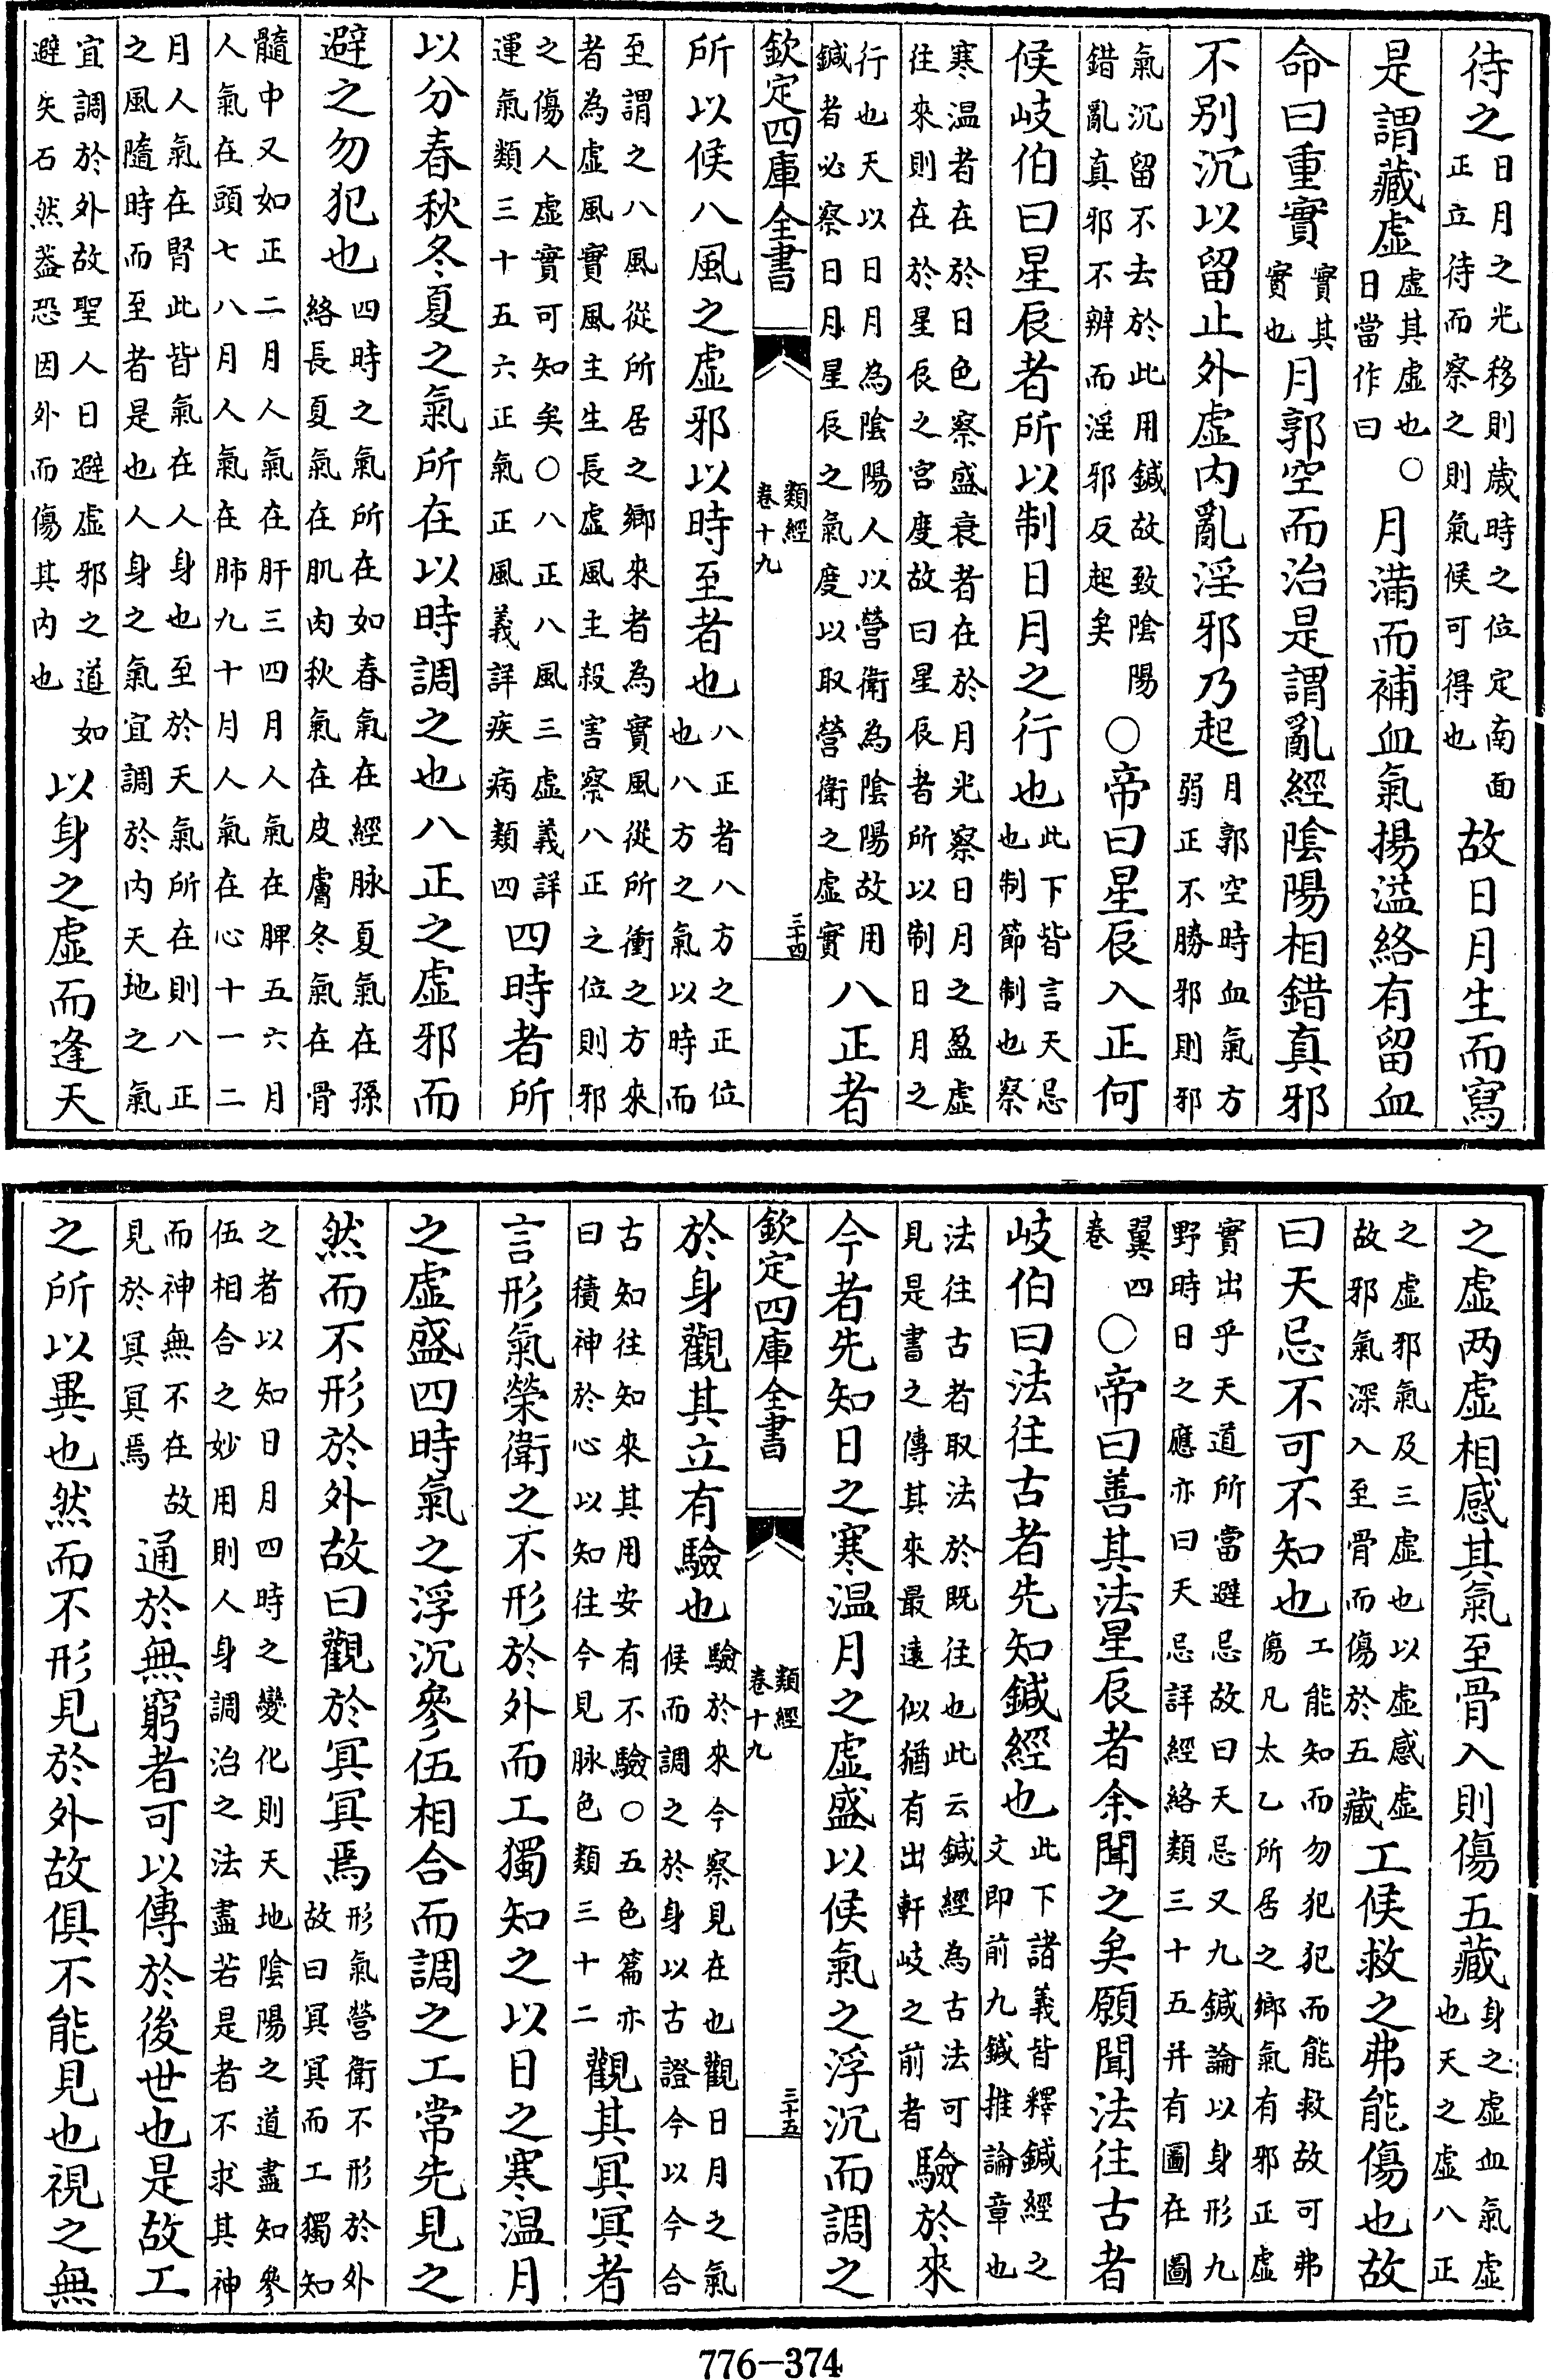 待之日月之光移則歳時之位定南面正立待而察之則氣候可得也故日月生而寫
是謂藏虛虛其虛也○日當作曰月滿而補血氣揚溢絡有留血
命曰重實實其實也月郭空而治是謂亂經陰陽相錯真邪
不别沉以留止外虛内亂淫邪乃起月郭空時血氣方弱正不勝邪則邪
氣沉留不去於此用鍼故致陰陽錯亂真邪不辨而淫邪反起矣○帝曰星辰入正何
候岐伯曰星辰者所以制日月之行也此下皆言天忌也制節制也察
寒温者在於日色察盛衰者在於月光察日月之盈虛往來則在於星辰之宫度故曰星辰者所以制日月之
行也天以日月為陰陽人以營衛為陰陽故用鍼者必察日月星辰之氣度以取營衛之虛實八正者
欽定四庫全書 類經 卷十九 三十四
所以候八風之虛邪以時至者也八正者八方之正位也八方之氣以時而
至謂之八風從所居之鄉來者為實風從所衝之方來者為虛風實風主生長虛風主殺害察八正之位則邪
之傷人虛實可知矣○八正八風三虛義詳運氣類三十五六正氣正風義詳疾病類四四時者所
以分春秋冬夏之氣所在以時調之也八正之虛邪而
避之勿犯也四時之氣所在如春氣在經脉夏氣在孫絡長夏氣在肌肉秋氣在皮膚冬氣在骨
髓中又如正二月人氣在肝三四月人氣在脾五六月人氣在頭七八月人氣在肺九十月人氣在心十一二
月人氣在腎此皆氣在人身也至於天氣所在則八正之風隨時而至者是也人身之氣宜調於内天地之氣
宜調於外故聖人日避虛邪之道如避矢石然葢恐因外而傷其内也以身之虛而逢天
之虛两虛相感其氣至骨入則傷五藏身之虛血氣虛也天之虛八正
之虛邪氣及三虛也以虛感虛故邪氣深入至骨而傷於五藏工候救之弗能傷也故
曰天忌不可不知也工能知而勿犯犯而能救故可弗傷凡太乙所居之鄉氣有邪正虛
實出乎天道所當避忌故曰天忌又九鍼論以身形九野時日之應亦曰天忌詳經絡類三十五并有圖在圖
翼四卷○帝曰善其法星辰者余聞之矣願聞法往古者
岐伯曰法往古者先知鍼經也此下諸義皆釋鍼經之文即前九鍼推論章也
法往古者取法於既往也此云鍼經為古法可見是書之傳其來最遠似猶有出軒岐之前者驗於來
今者先知日之寒温月之虛盛以候氣之浮沉而調之
欽定四庫全書 類經 卷十九 三十五
於身觀其立有驗也驗於來今察見在也觀日月之氣候而調之於身以古證今以今合
古知往知來其用安有不驗○五色篇亦曰積神於心以知往今見脉色類三十二觀其冥冥者
言形氣榮衛之不形於外而工獨知之以日之寒温月
之虛盛四時氣之浮沉參伍相合而調之工常先見之
然而不形於外故曰觀於冥冥焉形氣營衛不形於外故曰冥冥而工獨知
之者以知日月四時之變化則天地陰陽之道盡知參伍相合之妙用則人身調治之法盡若是者不求其神
而神無不在故見於冥冥焉通於無窮者可以傳於後世也是故工
之所以異也然而不形見於外故俱不能見也視之無
776-374